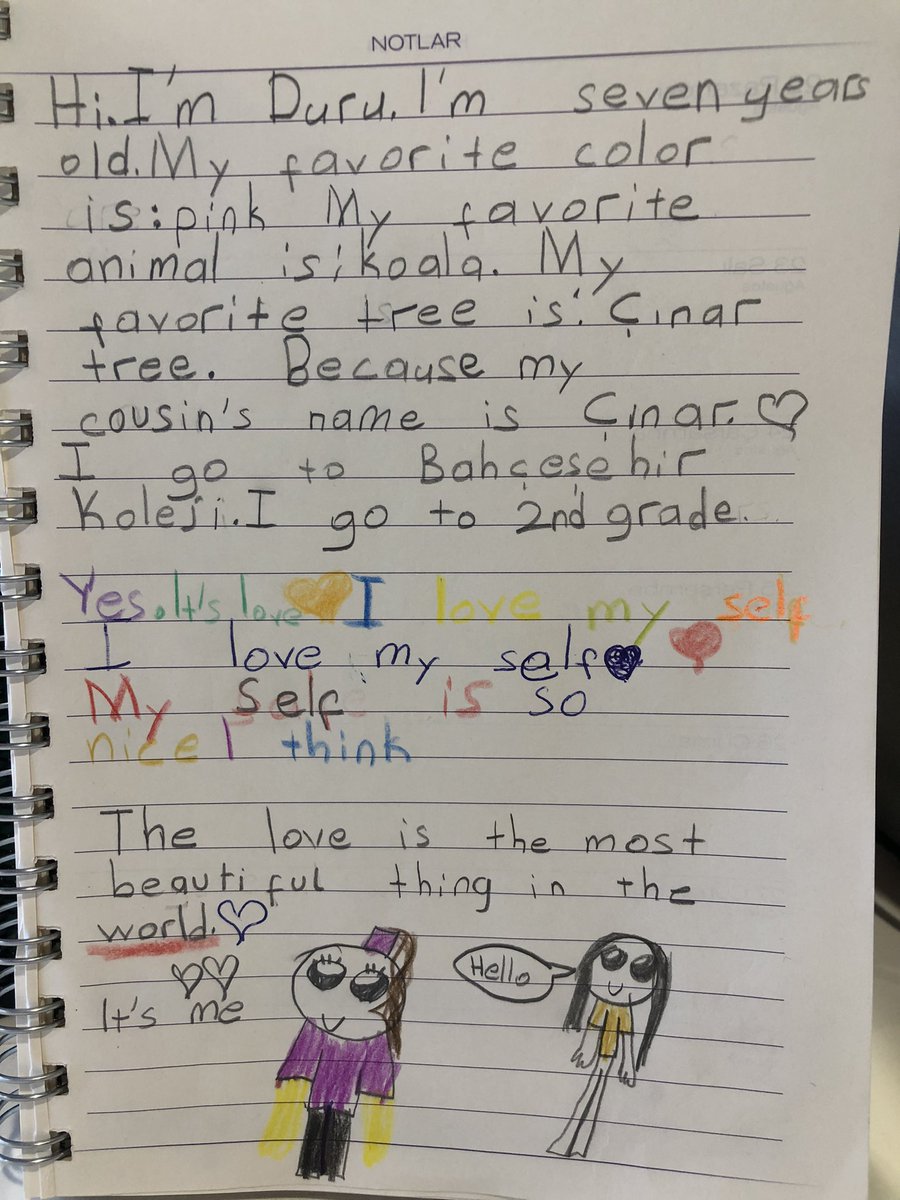 NOTLAR
Hi.I'm Duru.I'm seven years
old.My favorite color
is:pink My favorite
animal is;koala. My
favorite tree is: Çınar
tree. Because my
cousin's name is Çınar.♡
I go to Bahçeşehir
Koleji.I go to 2nd grade.
Yes.It's love I love my self
I love my self
My self is so
nice I think
The love is the most
beautiful thing in the
world.♡
Hello
It's me